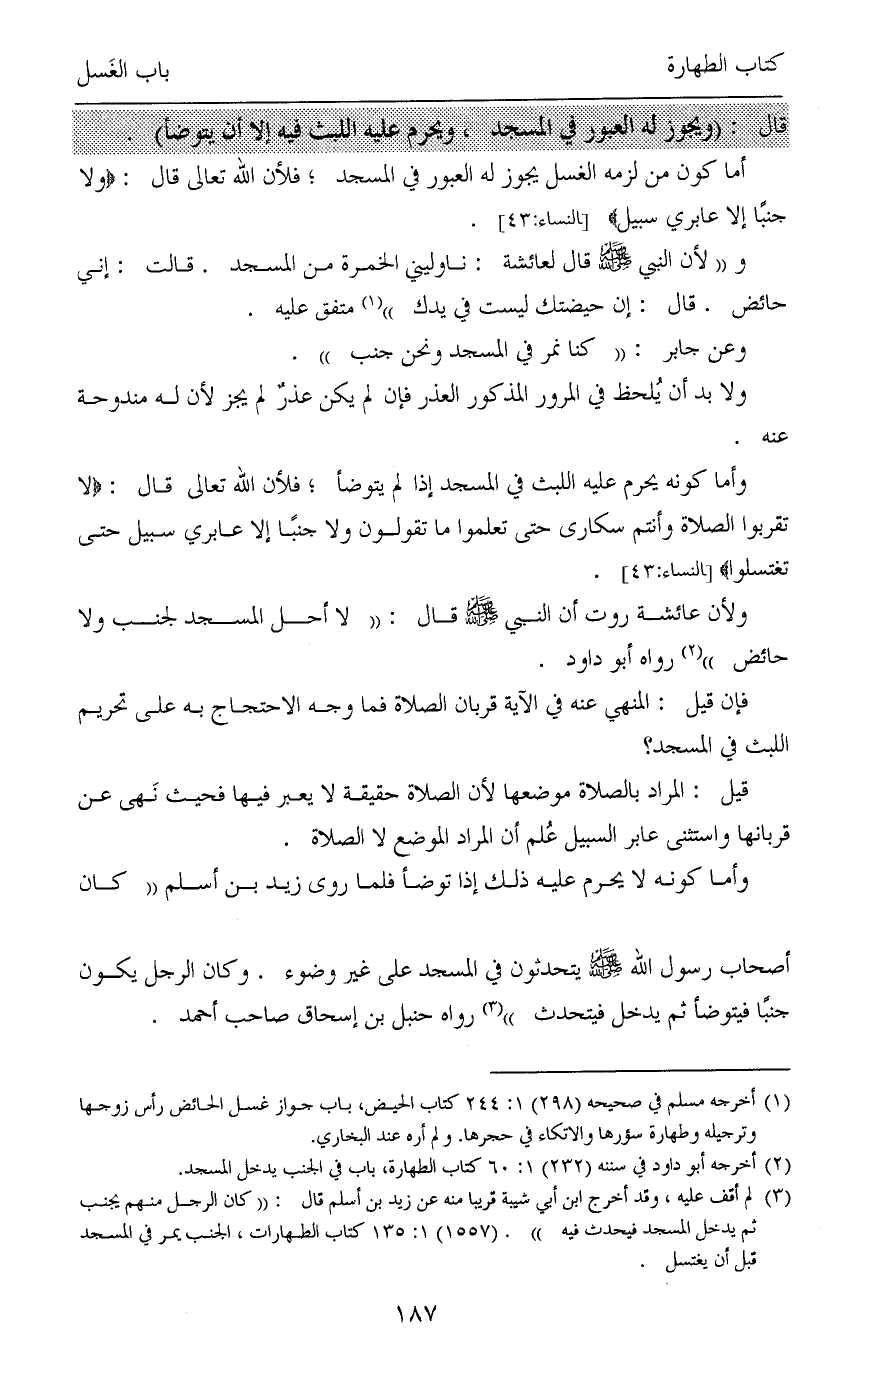 كتاب الطهارة باب الغَسل
قال : (ويجوز له العبور في المسجد ، ويحرم عليه اللبث فيه إلا أن يتوضأ) .
أما كون من لزمه الغسل يجوز له العبور في المسجد ؛ فلأن الله تعالى قال : ﴿ولا
جنبًا إلا عابري سبيل﴾ [النساء:٤٣] .
و (( لأن النبي ﷺ قال لعائشة : ناوليني الخمرة من المسجد . قالت : إني
حائض . قال : إن حيضتك ليست في يدك ))(١) متفق عليه .
وعن جابر : (( كنا نمر في المسجد ونحن جنب )) .
ولا بد أن يُلحظ في المرور المذكور العذر فإن لم يكن عذرٌ لم يجز لأن له مندوحة
عنه .
وأما كونه يحرم عليه اللبث في المسجد إذا لم يتوضأ ؛ فلأن الله تعالى قال : ﴿لا
تقربوا الصلاة وأنتم سكارى حتى تعلموا ما تقولون ولا جنبًا إلا عابري سبيل حتى
تغتسلوا﴾ [النساء:٤٣] .
ولأن عائشة روت أن النبي ﷺ قال : (( لا أحل المسجد لجنب ولا
حائض ))(٢) رواه أبو داود .
فإن قيل : المنهي عنه في الآية قربان الصلاة فما وجه الاحتجاج به على تحريم
اللبث في المسجد؟
قيل : المراد بالصلاة موضعها لأن الصلاة حقيقة لا يعبر فيها فحيث نَهى عن
قربانها واستثنى عابر السبيل عُلم أن المراد الموضع لا الصلاة .
وأما كونه لا يحرم عليه ذلك إذا توضأ فلما روى زيد بن أسلم (( كان
أصحاب رسول الله ﷺ يتحدثون في المسجد على غير وضوء . وكان الرجل يكون
جنبًا فيتوضأ ثم يدخل فيتحدث ))(٣) رواه حنبل بن إسحاق صاحب أحمد .
(١) أخرجه مسلم في صحيحه (٢٩٨) ١: ٢٤٤ كتاب الحيض، باب جواز غسل الحائض رأس زوجها
وترجيله وطهارة سؤرها والاتكاء في حجرها. ولم أره عند البخاري.
(٢) أخرجه أبو داود في سننه (٢٣٢) ١: ٦٠ كتاب الطهارة، باب في الجنب يدخل المسجد.
(٣) لم أقف عليه ، وقد أخرج ابن أبي شيبة قريبا منه عن زيد بن أسلم قال : (( كان الرجل منهم يجنب
ثم يدخل المسجد فيحدث فيه )) . (١٥٥٧) ١: ١٣٥ كتاب الطهارات ، الجنب يمر في المسجد
قبل أن يغتسل .
١٨٧